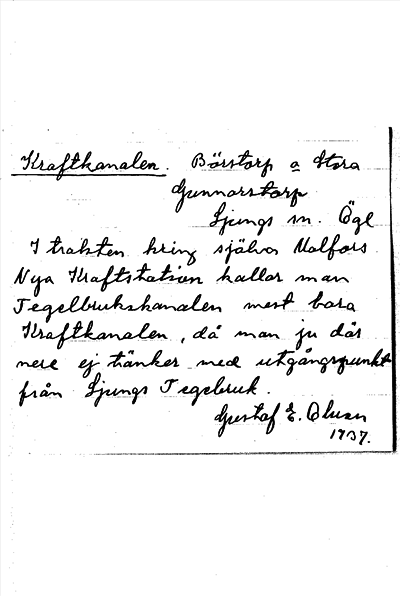 Kraftkanalen. Börstorp o Stora
Gunnarstorp
Ljungs sn. Ögl
I trakten kring själva Malfors
Nya Kraftstation kallar man
Tegelbrukskanalen mest bara
Kraftkanalen, då man ju där
nere ej tänker med utgångspunkt
från Ljungs Tegelbruk.
Gustaf E. Olson
1937.